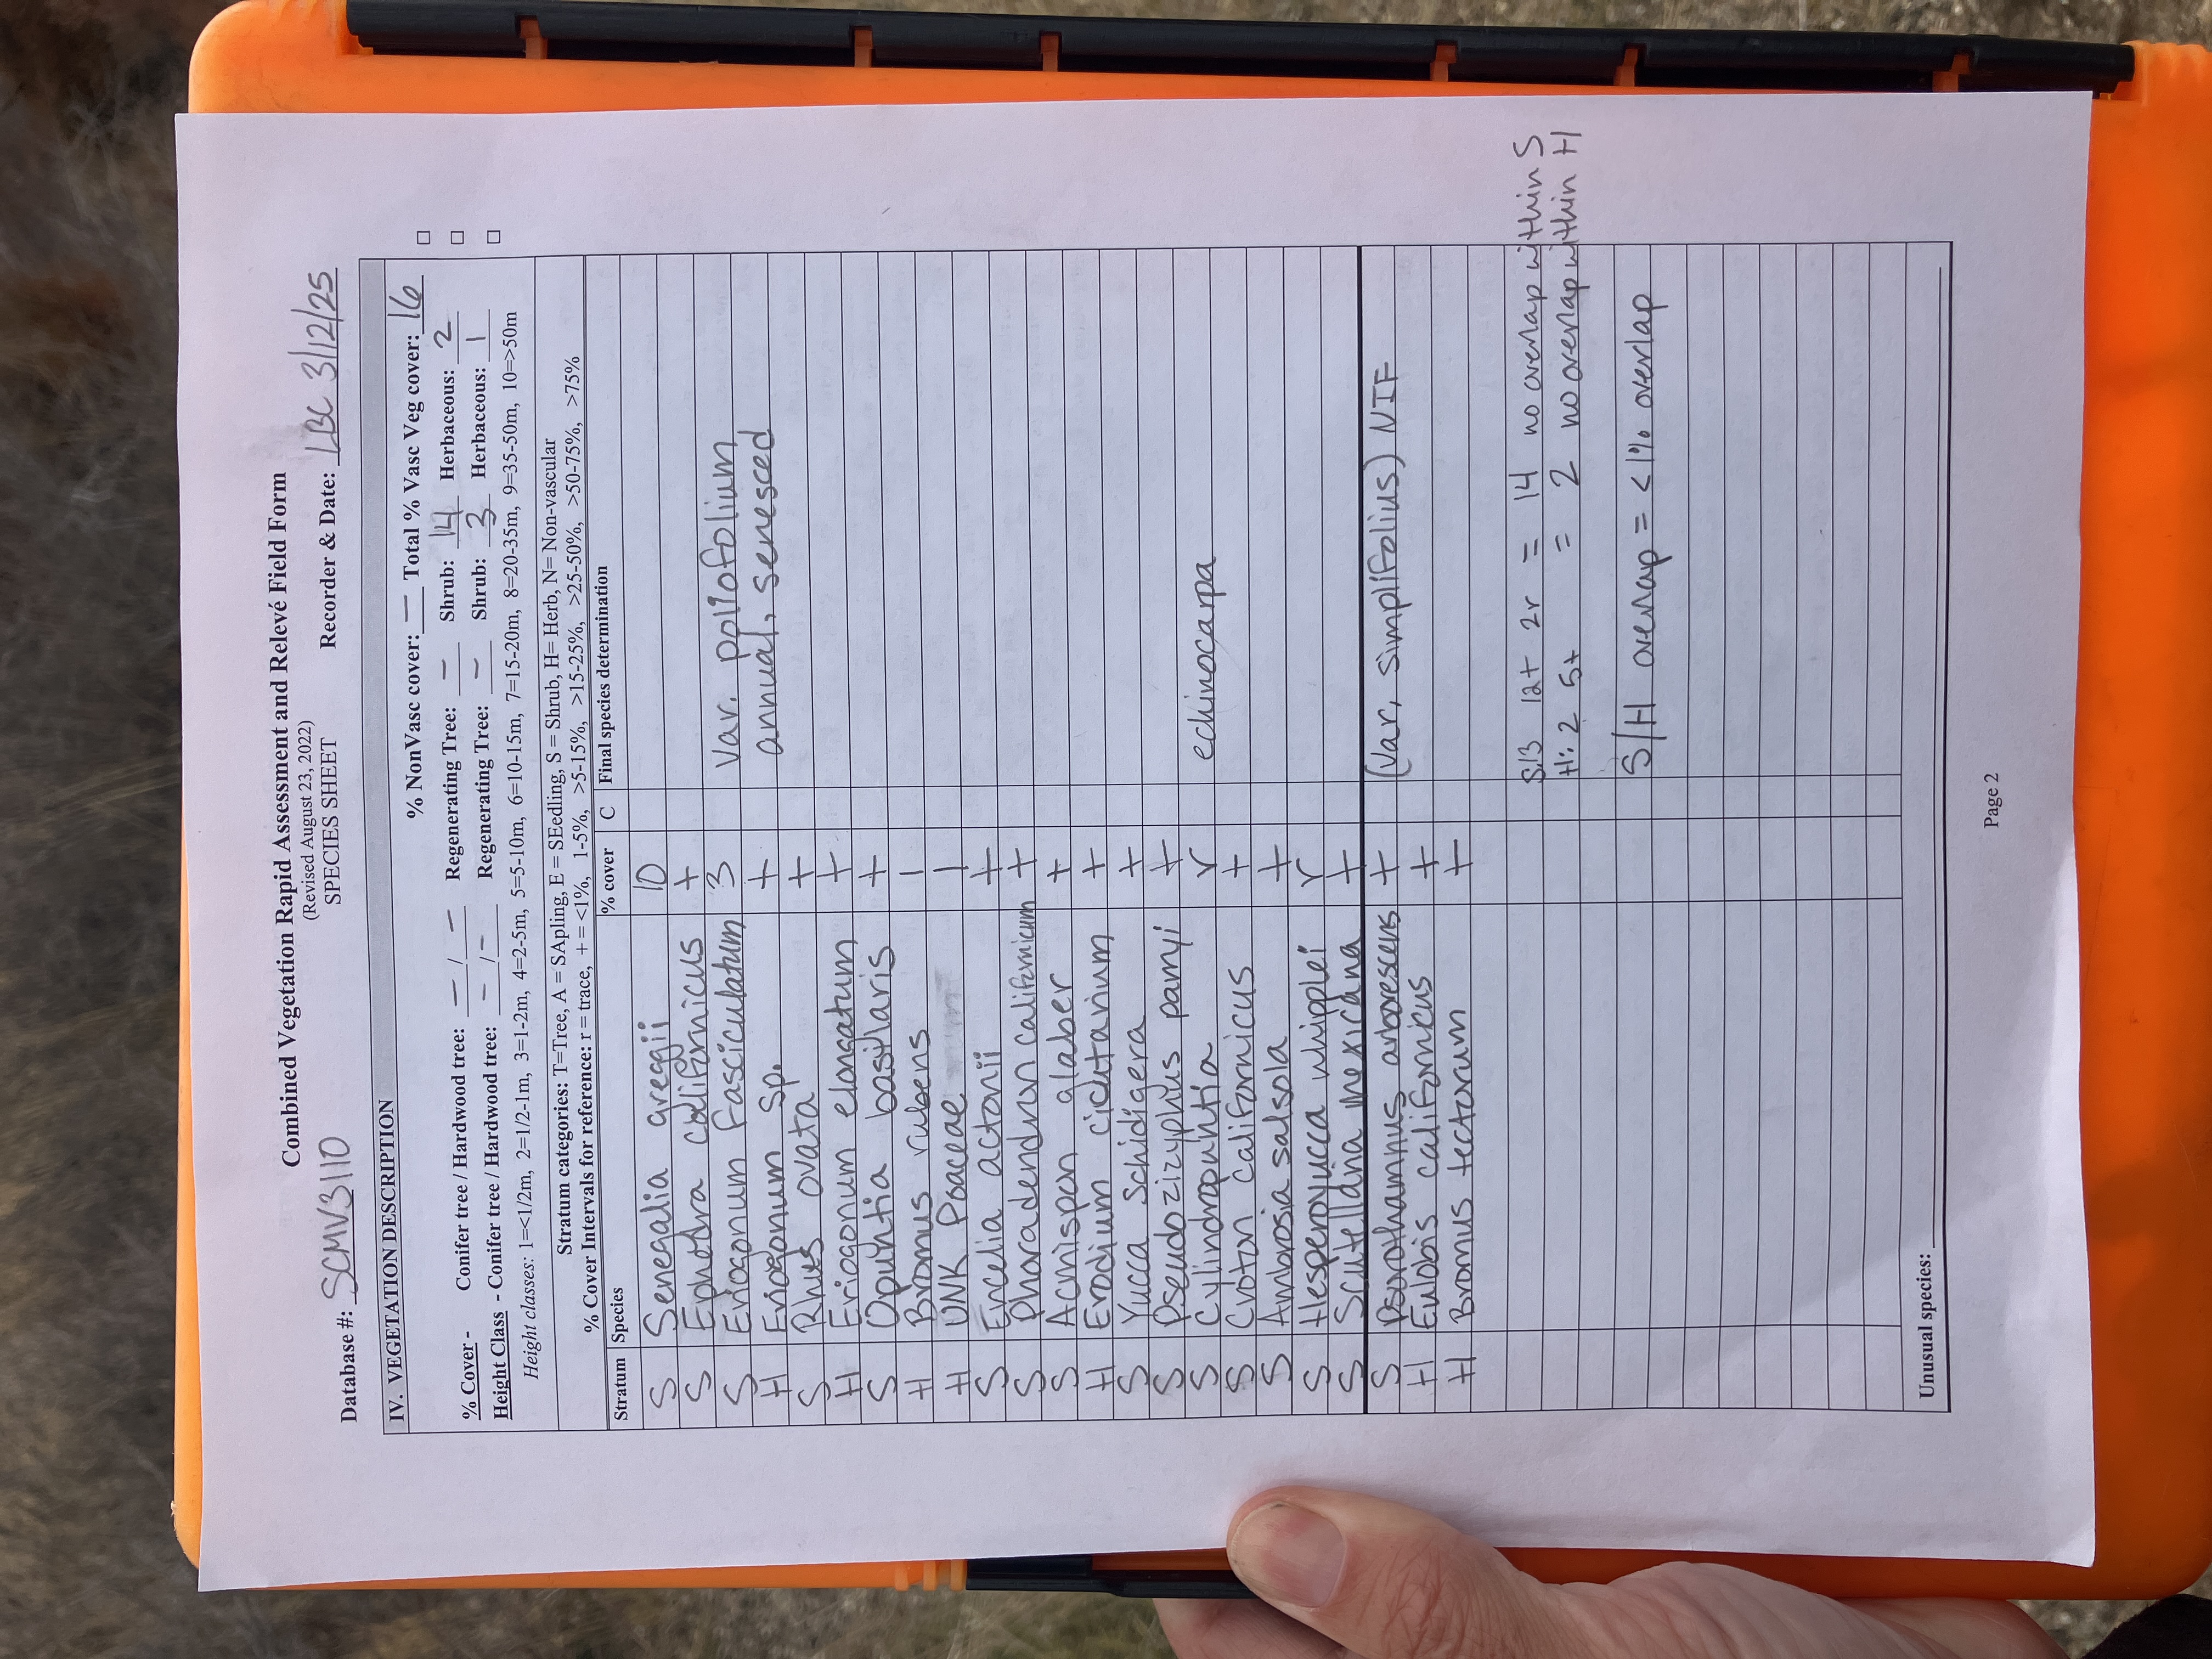 Combined Vegetation Rapid Assessment and Relevé Field Form
(Revised August 23, 2022)
SPECIES SHEET
Database #: SCMV3110 Recorder & Date: LBC 3/12/25
IV. VEGETATION DESCRIPTION
% NonVasc cover: — Total % Vasc Veg cover: 16 □
% Cover - Conifer tree / Hardwood tree: — / — Regenerating Tree: — Shrub: 14 Herbaceous: 2 □
Height Class - Conifer tree / Hardwood tree: — / — Regenerating Tree: — Shrub: 3 Herbaceous: 1 □
Height classes: 1=<1/2m, 2=1/2-1m, 3=1-2m, 4=2-5m, 5=5-10m, 6=10-15m, 7=15-20m, 8=20-35m, 9=35-50m, 10=>50m
Stratum categories: T=Tree, A = SApling, E = SEedling, S = Shrub, H= Herb, N= Non-vascular
% Cover Intervals for reference: r = trace, + = <1%, 1-5%, >5-15%, >15-25%, >25-50%, >50-75%, >75%
Stratum Species % cover C Final species determination
S Senegalia greggii 10
S Ephedra californicus +
S Eriogonum fasciculatum 3 var. poliofolium
H Eriogonum sp. + annual, senesced
S Rhus ovata +
H Eriogonum elongatum +
S Opuntia basilaris +
H Bromus rubens 1
H UNK Poaceae 1
S Encelia actonii +
S Phoradendron californicum +
S Acmispon glaber +
H Erodium cicutarium +
S Yucca schidigera +
S Pseudoziziphus parryi +
S Cylindropuntia r echinocarpa
S Croton californicus +
S Ambrosia salsola +
S Hesperoyucca whipplei r
S Scutellaria mexicana +
S Psorothamnus arborescens + (var. simplifolius) NIF
H Eulobis californicus +
H Bromus tectorum +
S:13 12+ 2r = 14 no overlap within S
H: 2 5+ = 2 no overlap within H
S/H overlap = <1% overlap
Unusual species:
Page 2